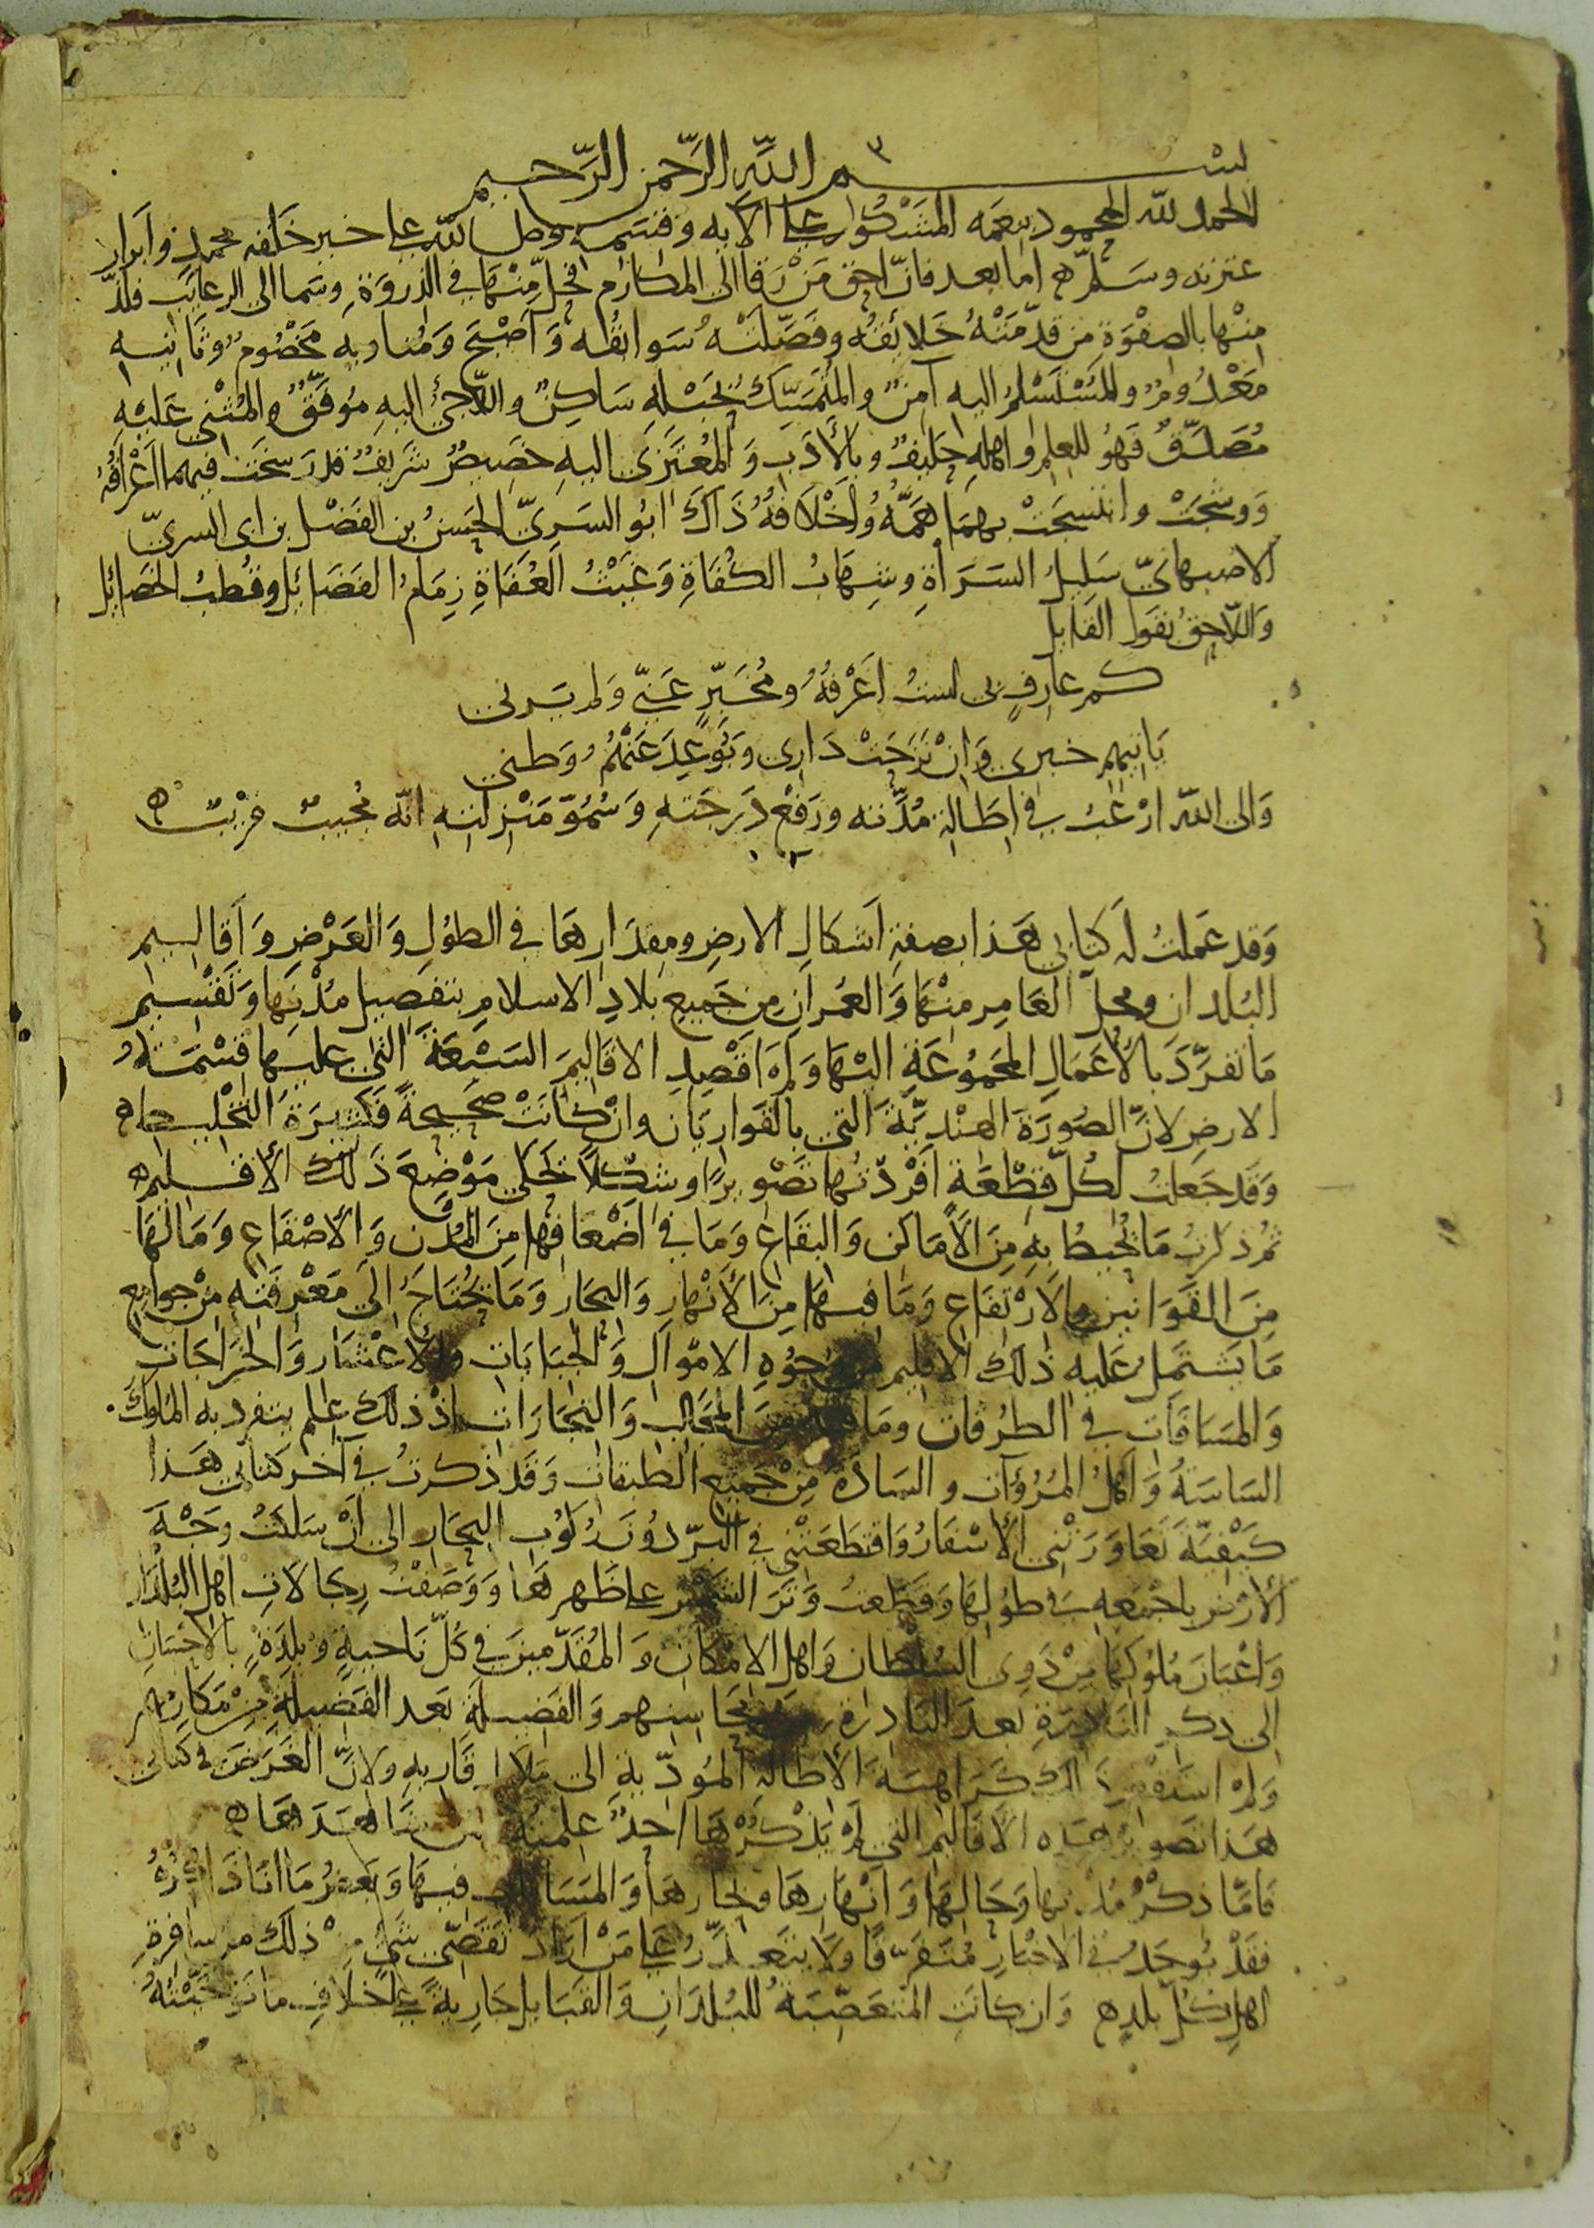 بسم الله الرحمن الرحيم
الحمد لله المحمود بنعمه المشكور على آلايه وقسمه وصلى الله على خير خلقه محمد وابرار
عترته وسلم ه اما بعد فان احق من رقا الى المكارم فحل منها في الذروة وسما الى الرغايب
منها بالصفوة من قدمته خلائقه وفضلته سوابقه وأصبح ومناويه مخصوم وثانيه
معدوم والمستسلم اليه آمن والمتمسك بحبله ساكن واللاجئ اليه موفق والمثني عليه
مصدق فهو للعلم واهله حليف وبالأدب والمعتزى اليه خصيص شريف قد رسخت فيهما اعراقه
ووشجت وانتسجت بهما هممه واخلاقه ذاك ابو السري الحسن بن الفضل بن ابى السري
الاصبهاني سليل السراة وشهاب الكفاة وغيث العفاة زمام الفضائل وقطب الخصائل
واللاحق بقول القايل
كم عارف بى لست اعرفه ومخبر عني ولم يرنى
يانيهم خبرى وان نزحت دارى وبوعد عنهم وطنى
والى الله ارغب في اطالة مدته ورفع درجته وسمو منزلته انه مجيب قريب ه
وقد عملت له كتابى هذا بصفة اشكال الارض ومقدارها في الطول والعرض واقاليم
البلدان ومحل الغامر منها والعمران من جميع بلاد الاسلام بتفصيل مدنها وتقسيم
ما تفرد بالأعمال المجموعة اليها ولم اقصد الاقاليم السبعة التى عليها قسمة
الارض لأن الصورة الهندية التى بالقواريان وان كانت صحيحة فكثيرة التخليط ه
وقد جعلت لكل قطعة افردتها تصويرا وشكلا يحكى موضع ذلك الأقليم ه
ثم ذكرت ما يحيط به من الأماكن والبقاع وما في اضعافها من المدن والأصقاع وما لها
من القوانين والارتفاع وما فيها من الأنهار والبحار وما يحتاج الى معرفته من جوامع
ما يشتمل عليه ذلك الاقليم من وجوه الاموال والجبايات والأعشار والخراجات
والمسافات في الطرقات وما فيه من المجالب والتجارات اذ ذلك علم يتفرد به الملوك
الساسة وأهل المروآت والسادة من جميع الطبقات وقد ذكرت في آخر كتابى هذا
كيفية تعاورتنى الأسفار واقتطعتنى في البر دون ركوب البحار الى ان سلكت وجه
الأرض باجمعه في طولها وقطعت وتر الشمس على ظهرها ووصفت رجالات اهل البلدان
واعيان ملوكها من ذوى السلطان واهل الامكان والمقدمين في كل ناحية وبلدة بالاحسان
الى ذكر النادرة بعد النادرة من محاسنهم والفضيلة بعد الفضيلة من مكارمهم
ولم استقص ذلك كراهية الأطالة المؤدية الى ملال قاريه ولان الغرض في كتابى
هذا تصوير هذه الاقاليم التى لم يذكرها احد علمته ممن شاهدها ه
فاما ذكر مدنها وجبالها وانهارها وبحارها والمسافات فيها وبعض ما انا ذاكره
فقد يوجد في الاخبار متفرقا ولا يتعذر على من اراد تقصى شئ من ذلك من سافرة
اهل كل بلده وان كانت المتعصبة للبلدان والقبايل جارية على خلاف ما توخيته